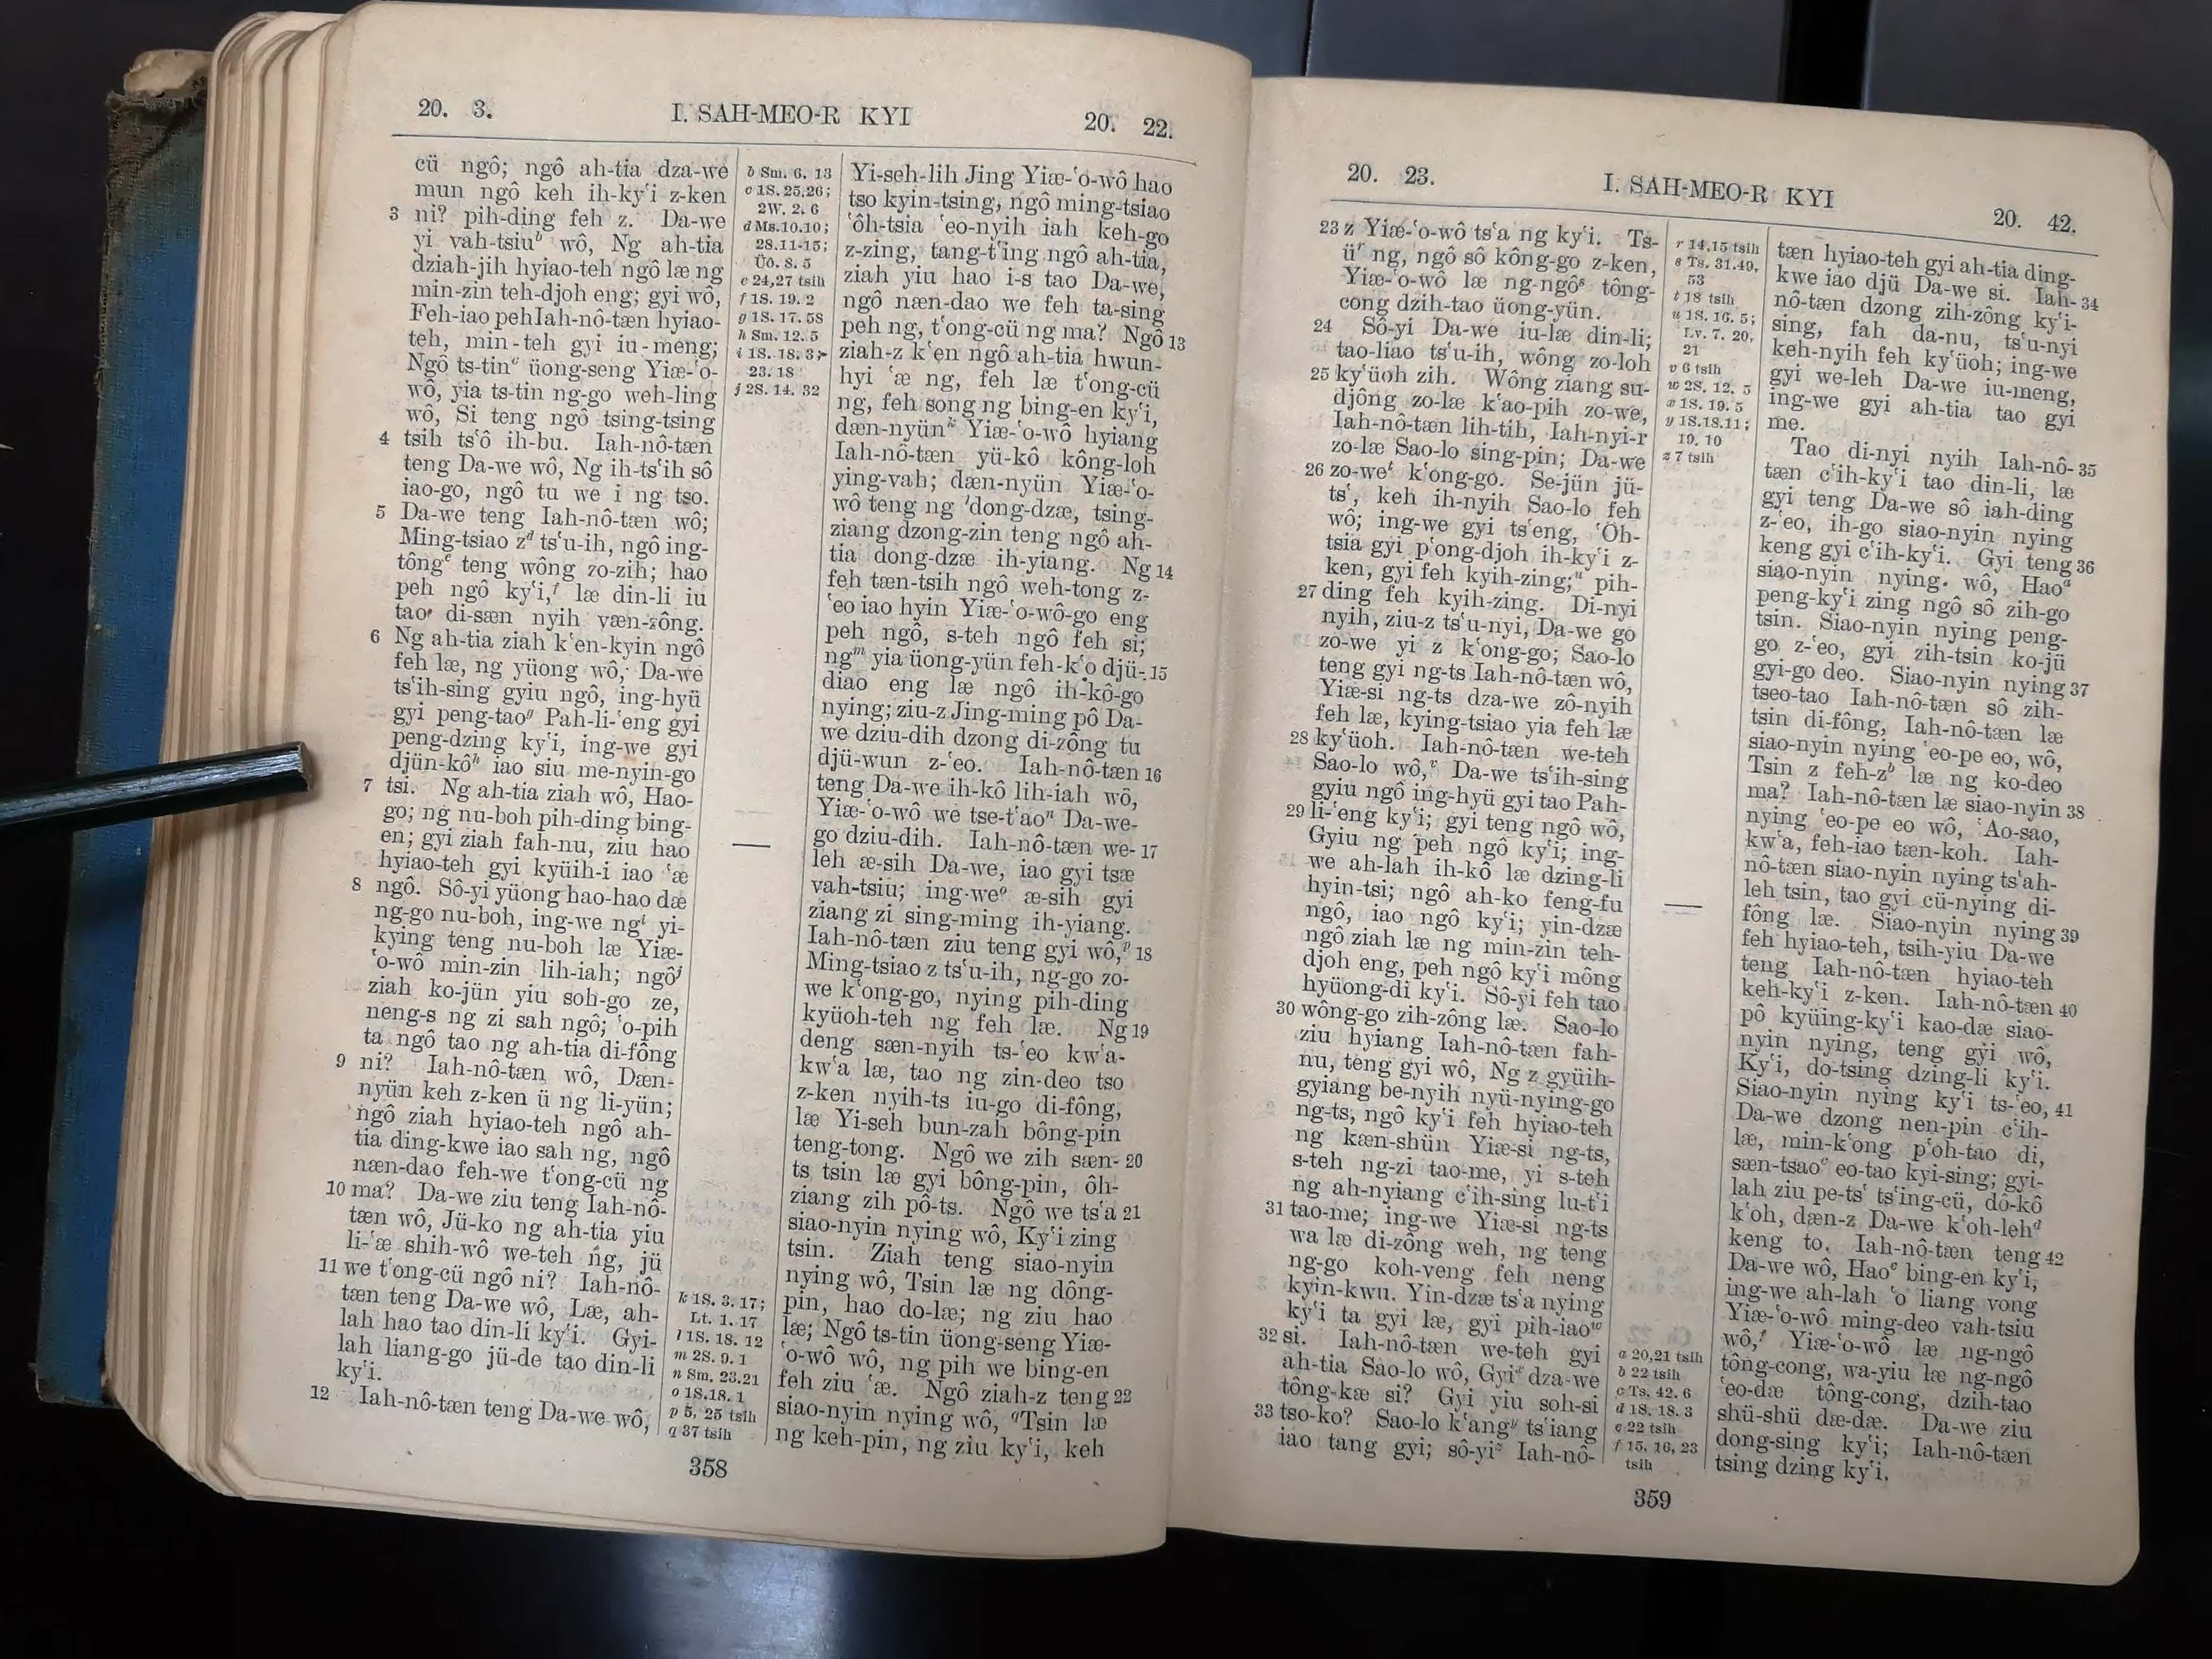 20. 3.
I. SAH-MEO-R KYI
20. 22.
cü ngô; ngô ah-tia dza-we
mun ngô keh ih-kyʻi z-ken
3 ni? pih-ding feh z. Da-we
yi vah-tsiuᵇ wô, Ng ah-tia
dziah-jih hyiao-teh ngô læ ng
min-zin teh-djoh eng; gyi wô,
Feh-iao pehIah-nô-tæn hyiao-
teh, min-teh gyi iu-meng;
Ngô ts-tinᶜ üong-seng Yiæ-ʻo-
wô, yia ts-tin ng-go weh-ling
wô, Si teng ngô tsing-tsing
4 tsih tsʻô ih-bu. Iah-nô-tæn
teng Da-we wô, Ng ih-tsʻih sô
iao-go, ngô tu we i ng tso.
5 Da-we teng Iah-nô-tæn wô;
Ming-tsiao zᵈ tsʻu-ih, ngô ing-
tôngᵉ teng wông zo-zih; hao
peh ngô kyʻi,ᶠ læ din-li iu
tao di-sæn nyih væn-zông.
6 Ng ah-tia ziah kʻen-kyin ngô
feh læ, ng yüong wô, Da-we
tsʻih-sing gyiu ngô, ing-hyü
gyi peng-taoᵍ Pah-li-ʻeng gyi
peng-dzing kyʻi, ing-we gyi
djün-kôʰ iao siu me-nyin-go
7 tsi. Ng ah-tia ziah wô, Hao-
go; ng nu-boh pih-ding bing-
en; gyi ziah fah-nu, ziu hao
hyiao-teh gyi kyüih-i iao ʻæ
8 ngô. Sô-yi yüong hao-hao dæ
ng-go nu-boh, ing-we ngⁱ yi-
kying teng nu-boh læ Yiæ-
ʻo-wô min-zin lih-iah; ngôʲ
ziah ko-jün yiu soh-go ze,
neng-s ng zi sah ngô; ʻo-pih
ta ngô tao ng ah-tia di-fông
9 ni? Iah-nô-tæn wô, Dæn-
nyün keh z-ken ü ng li-yün;
ngô ziah hyiao-teh ngô ah-
tia ding-kwe iao sah ng, ngô
næn-dao feh-we tʻong-cü ng
10 ma? Da-we ziu teng Iah-nô-
tæn wô, Jü-ko ng ah-tia yiu
li-ʻæ shih-wô we-teh ng, jü
11 we tʻong-cü ngô ni? Iah-nô-
tæn teng Da-we wô, Læ, ah-
lah hao tao din-li kyʻi. Gyi-
lah liang-go jü-de tao din-li
kyʻi.
12 Iah-nô-tæn teng Da-we wô,
b Sm. 6. 13
c 1S. 25,26;
2W. 2. 6
d Ms.10.10;
28.11-15;
Üô. 8. 5
e 24,27 tsih
f 1S. 19. 2
g 1S. 17. 58
h Sm. 12. 5
i 1S. 18. 3;
23. 18
j 2S. 14. 32
k 1S. 3. 17;
Lt. 1. 17
l 1S. 18. 12
m 2S. 9. 1
n Sm. 23.21
o 1S.18. 1
p 5, 25 tsih
q 37 tsih
Yi-seh-lih Jing Yiæ-ʻo-wô hao
tso kyin-tsing, ngô ming-tsiao
ʻôh-tsia ʻeo-nyih iah keh-go
z-zing, tang-tʻing ngô ah-tia,
ziah yiu hao i-s tao Da-we,
ngô næn-dao we feh ta-sing
peh ng, tʻong-cü ng ma? Ngô 13
ziah-z kʻen ngô ah-tia hwun-
hyi ʻæ ng, feh læ tʻong-cü
ng, feh song ng bing-en kyʻi,
dæn-nyünᵏ Yiæ-ʻo-wô hyiang
Iah-nô-tæn yü-kô kông-loh
ying-vah; dæn-nyün Yiæ-ʻo-
wô teng ng ˡdong-dzæ, tsing-
ziang dzong-zin teng ngô ah-
tia dong-dzæ ih-yiang. Ng 14
feh tæn-tsih ngô weh-tong z-
ʻeo iao hyin Yiæ-ʻo-wô-go eng
peh ngô, s-teh ngô feh si;
ngᵐ yia üong-yün feh-kʻo djü- 15
diao eng læ ngô ih-kô-go
nying; ziu-z Jing-ming pô Da-
we dziu-dih dzong di-zông tu
djü-wun z-ʻeo. Iah-nô-tæn 16
teng Da-we ih-kô lih-iah wô,
Yiæ-ʻo-wô we tse-tʻaoⁿ Da-we-
go dziu-dih. Iah-nô-tæn we- 17
leh æ-sih Da-we, iao gyi tsæ
vah-tsiu; ing-weᵒ æ-sih gyi
ziang zi sing-ming ih-yiang.
Iah-nô-tæn ziu teng gyi wô,ᵖ 18
Ming-tsiao z tsʻu-ih, ng-go zo-
we kʻong-go, nying pih-ding
kyüoh-teh ng feh læ. Ng 19
deng sæn-nyih ts-ʻeo kwʻa-
kwʻa læ, tao ng zin-deo tso
z-ken nyih-ts iu-go di-fông,
læ Yi-seh bun-zah bông-pin
teng-tong. Ngô we zih sæn- 20
ts tsin læ gyi bông-pin, ôh-
ziang zih pô-ts. Ngô we tsʻa 21
siao-nyin nying wô, Kyʻi zing
tsin. Ziah teng siao-nyin
nying wô, Tsin læ ng dông-
pin, hao do-læ; ng ziu hao
læ; Ngô ts-tin üong-seng Yiæ-
ʻo-wô wô, ng pih we bing-en
feh ziu ʻæ. Ngô ziah-z teng 22
siao-nyin nying wô, ᑫTsin læ
ng keh-pin, ng ziu kyʻi, keh
358
20. 23.
I. SAH-MEO-R KYI
20. 42.
23 z Yiæ-ʻo-wô tsʻa ng kyʻi. Ts-
üʳ ng, ngô sô kông-go z-ken,
Yiæ-ʻo-wô læ ng-ngôˢ tông-
cong dzih-tao üong-yün.
24 Sô-yi Da-we iu-læ din-li;
tao-liao tsʻu-ih, wông zo-loh
25 kyʻüoh zih. Wông ziang su-
djông zo-læ kʻao-pih zo-we,
Iah-nô-tæn lih-tih, Iah-nyi-r
zo-læ Sao-lo sing-pin; Da-we
26 zo-weᵗ kʻong-go. Se-jün jü-
tsʻ, keh ih-nyih Sao-lo feh
wô; ing-we gyi tsʻeng, ʻÔh-
tsia gyi pʻong-djoh ih-kyʻi z-
ken, gyi feh kyih-zing;ᵘ pih-
27 ding feh kyih-zing. Di-nyi
nyih, ziu-z tsʻu-nyi, Da-we go
zo-we yi z kʻong-go; Sao-lo
teng gyi ng-ts Iah-nô-tæn wô,
Yiæ-si ng-ts dza-we zô-nyih
feh læ, kying-tsiao yia feh læ
28 kyʻüoh. Iah-nô-tæn we-teh
Sao-lo wô,ᵛ Da-we tsʻih-sing
gyiu ngô ing-hyü gyi tao Pah-
29 li-ʻeng kyʻi; gyi teng ngô wô,
Gyiu ng peh ngô kyʻi; ing-
we ah-lah ih-kô læ dzing-li
hyin-tsi; ngô ah-ko feng-fu
ngô, iao ngô kyʻi; yin-dzæ
ngô ziah læ ng min-zin teh-
djoh eng, peh ngô kyʻi mông
hyüong-di kyʻi. Sô-yi feh tao
30 wông-go zih-zông læ. Sao-lo
ziu hyiang Iah-nô-tæn fah-
nu, teng gyi wô, Ng z gyüih-
gyiang be-nyih nyü-nying-go
ng-ts, ngô kyʻi feh hyiao-teh
ng kæn-shün Yiæ-si ng-ts,
s-teh ng-zi tao-me, yi s-teh
ng ah-nyiang cʻih-sing lu-tʻi
31 tao-me; ing-we Yiæ-si ng-ts
wa læ di-zông weh, ng teng
ng-go koh-veng feh neng
kyin-kwu. Yin-dzæ tsʻa nying
kyʻi ta gyi læ, gyi pih-iaoʷ
32 si. Iah-nô-tæn we-teh gyi
ah-tia Sao-lo wô, Gyiˣ dza-we
tông-kæ si? Gyi yiu soh-si
33 tso-ko? Sao-lo kʻangʸ tsʻiang
iao tang gyi; sô-yiᶻ Iah-nô-
r 14,15 tsih
s Ts. 31.49,
53
t 18 tsih
u 1S. 16. 5;
Lv. 7. 20,
21
v 6 tsih
w 2S. 12. 5
x 1S. 19. 5
y 1S.18.11;
19. 10
z 7 tsih
a 20,21 tsih
b 22 tsih
c Ts. 42. 6
d 1S. 18. 3
e 22 tsih
f 15, 16, 23
tsih
tæn hyiao-teh gyi ah-tia ding-
kwe iao djü Da-we si. Iah- 34
nô-tæn dzong zih-zông kyʻi-
sing, fah da-nu, tsʻu-nyi
keh-nyih feh kyʻüoh; ing-we
gyi we-leh Da-we iu-meng,
ing-we gyi ah-tia tao gyi
me.
Tao di-nyi nyih Iah-nô- 35
tæn cʻih-kyʻi tao din-li, læ
gyi teng Da-we sô iah-ding
z-ʻeo, ih-go siao-nyin nying
keng gyi cʻih-kyʻi. Gyi teng 36
siao-nyin nying wô, Haoᵃ
peng-kyʻi zing ngô sô zih-go
tsin. Siao-nyin nying peng-
go z-ʻeo, gyi zih-tsin ko-jü
gyi-go deo. Siao-nyin nying 37
tseo-tao Iah-nô-tæn sô zih-
tsin di-fông, Iah-nô-tæn læ
siao-nyin nying ʻeo-pe eo, wô,
Tsin z feh-zᵇ læ ng ko-deo
ma? Iah-nô-tæn læ siao-nyin 38
nying ʻeo-pe eo wô, ʻAo-sao,
kwʻa, feh-iao tæn-koh. Iah-
nô-tæn siao-nyin nying tsʻah-
leh tsin, tao gyi cü-nying di-
fông læ. Siao-nyin nying 39
feh hyiao-teh, tsih-yiu Da-we
teng Iah-nô-tæn hyiao-teh
keh-kyʻi z-ken. Iah-nô-tæn 40
pô kyüing-kyʻi kao-dæ siao-
nyin nying, teng gyi wô,
Kyʻi, do-tsing dzing-li kyʻi.
Siao-nyin nying kyʻi ts-ʻeo, 41
Da-we dzong nen-pin cʻih-
læ, min-kʻong pʻoh-tao di,
sæn-tsaoᶜ eo-tao kyi-sing; gyi-
lah ziu pe-tsʻ tsʻing-cü, dô-kô
kʻoh, dæn-z Da-we kʻoh-lehᵈ
keng to. Iah-nô-tæn teng 42
Da-we wô, Haoᵉ bing-en kyʻi,
ing-we ah-lah ʻo liang vong
Yiæ-ʻo-wô ming-deo vah-tsiu
wô,ᶠ Yiæ-ʻo-wô læ ng-ngô
tông-cong, wa-yiu læ ng-ngô
ʻeo-dæ tông-cong, dzih-tao
shü-shü dæ-dæ. Da-we ziu
dong-sing kyʻi; Iah-nô-tæn
tsing dzing kyʻi.
359